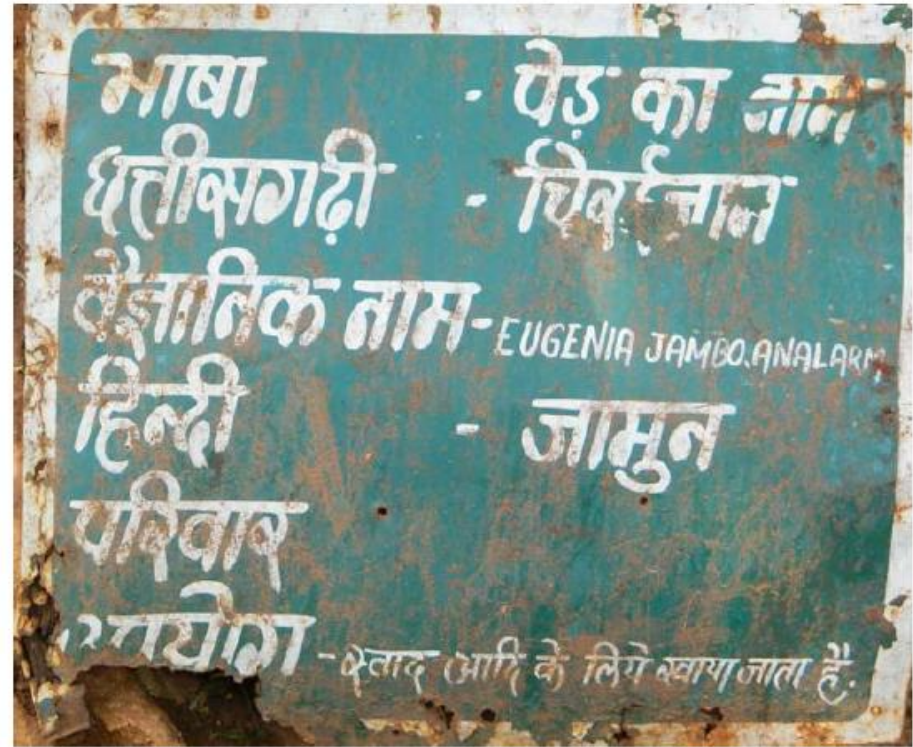 भाषा - पेड़ का नाम
छत्तीसगढ़ी - चिरईजाम
वैज्ञानिक नाम - EUGENIA JAMBO.ANALARM
हिन्दी - जामुन
परिवार
उपयोग - स्वाद आदि के लिये खाया जाता है.